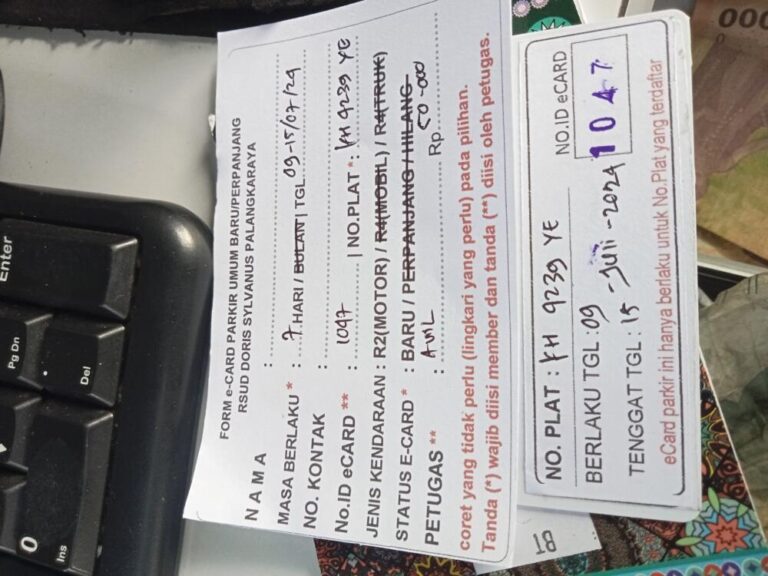 FORM e-CARD PARKIR UMUM BARU/PERPANJANG
RSUD DORIS SYLVANUS PALANGKARAYA
N A M A :
MASA BERLAKU * : 7 HARI / BULAN | TGL 09-15/07/24
NO. KONTAK :
No.ID eCARD ** : 1047 | NO.PLAT * : KH 9239 YE
JENIS KENDARAAN : R2(MOTOR) / R4(MOBIL) / R4(TRUK)
STATUS E-CARD * : BARU / PERPANJANG / HILANG
PETUGAS ** : Rp 50.000
coret yang tidak perlu (lingkari yang perlu) pada pilihan.
Tanda (*) wajib diisi member dan tanda (**) diisi oleh petugas.
NO. PLAT : KH 9239 YE
NO.ID eCARD
BERLAKU TGL : 09
1047
TENGGAT TGL : 15 - Juli - 2024
eCard parkir ini hanya berlaku untuk No.Plat yang terdaftar
Enter
Pg Dn
.
Del
0
Ins
000